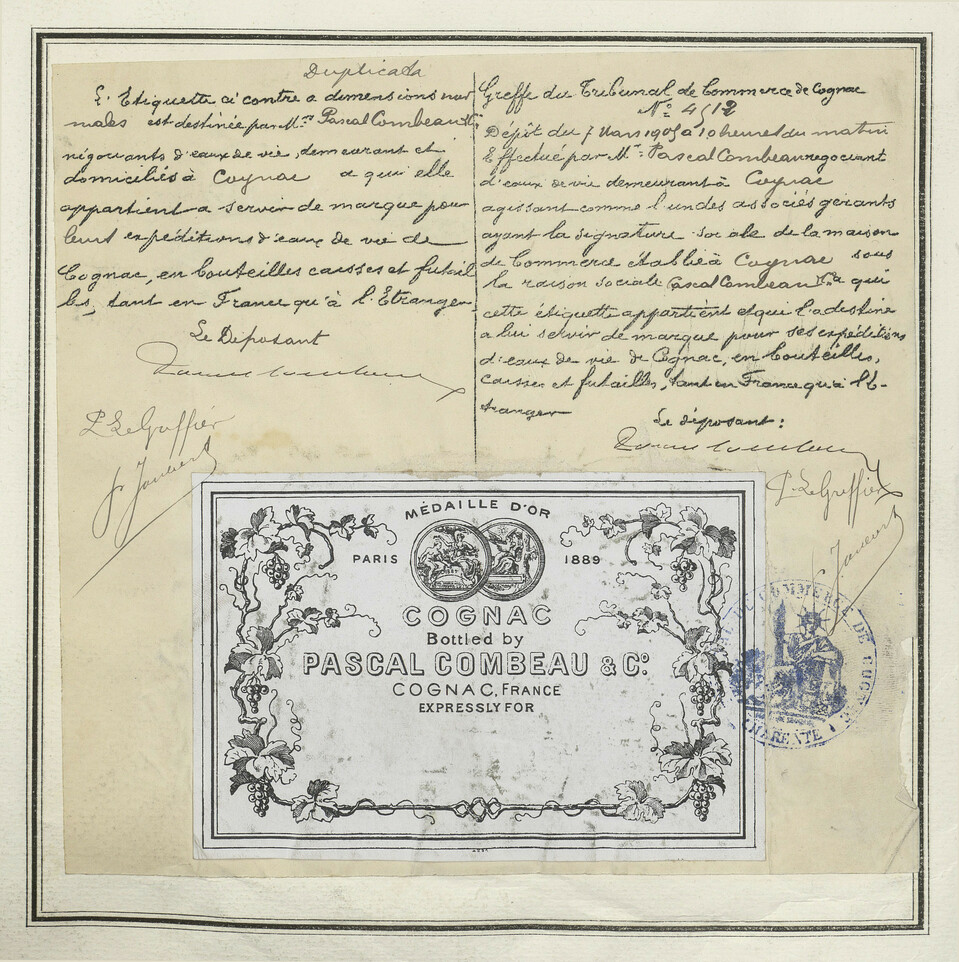 Duplicata
L'Etiquette ci contre a dimensions nor
males est destinée par Mrs Pascal Combeau & Cie
négociants d'eaux de vie, demeurant et
domiciliés à Cognac a qui elle
appartient a servir de marque pour
leurs expéditions d'eaux de vie de
Cognac, en bouteilles caisses et futail
les, tant en France qu'à l'Etranger
Le Déposant
P. Le Greffier
Greffe du Tribunal de Commerce de Cognac
No 4512
Dépôt du 7 Mars 1905 à 10 heures du matin
Effectué par Mr Pascal Combeau negociant
d'eaux de vie demeurant à Cognac
agissant comme l'un des associés gérants
ayant la signature sociale de la maison
de Commerce établie à Cognac sous
la raison sociale Pascal Combeau & Cie a qui
cette étiquette appartient et qui l'a destine
a lui servir de marque pour ses expéditions
d'eaux de vie de Cognac, en bouteilles,
caisses et futailles, tant en France qu'à l'E-
tranger
Le déposant:
P. Le Greffier
MÉDAILLE D'OR
PARIS 1889
COGNAC
Bottled by
PASCAL COMBEAU & Co.
COGNAC, FRANCE
EXPRESSLY FOR
COMMERCE DE
CHARENTE